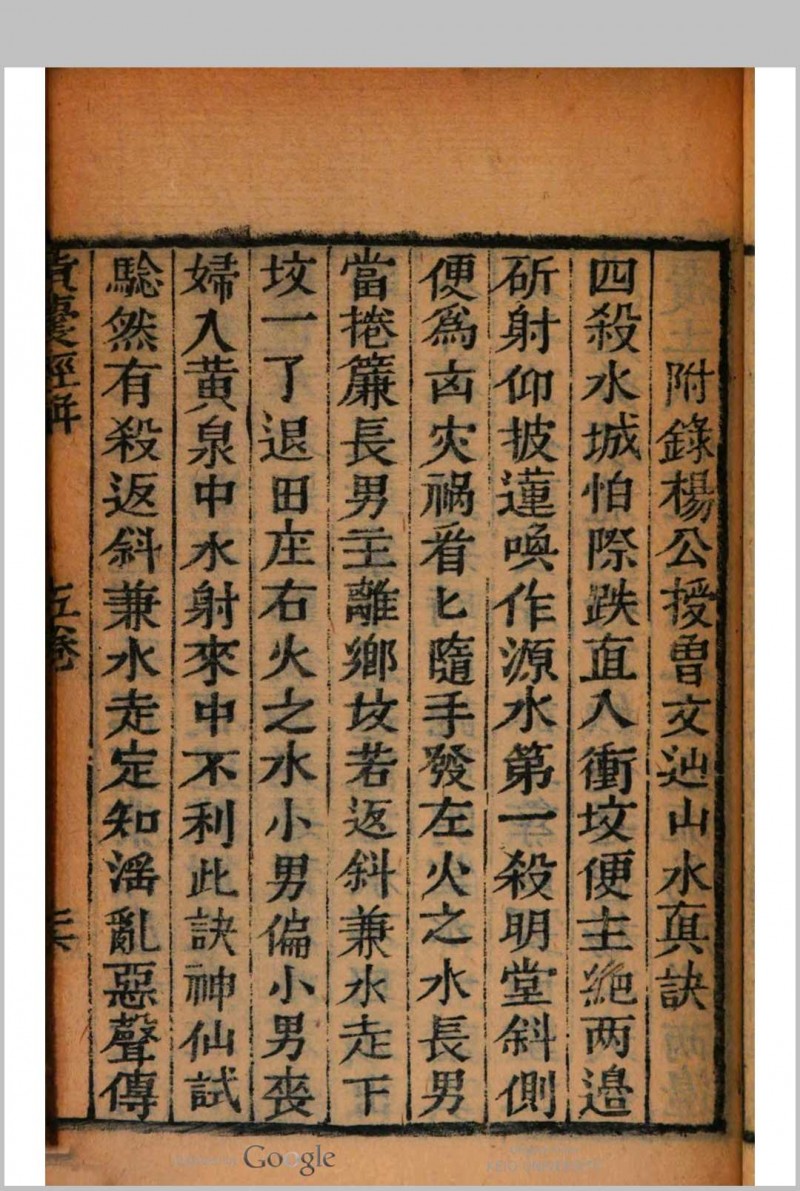 附錄楊公授曾文辿山水真訣
四殺水城怕際跌直入衝坟便主絶两邉
斫射仰披蓮喚作源水第一殺明堂斜側
便為凶灾禍看匕隨手發左火之水長男
當捲簾長男主離鄉坟若返斜兼水走下
坟一了退田庄右火之水小男偏小男喪
婦入黄泉中水射來中不利此訣神仙試
騐然有殺返斜兼水走定知滛亂惡聲傳
青囊經解 五卷
Google